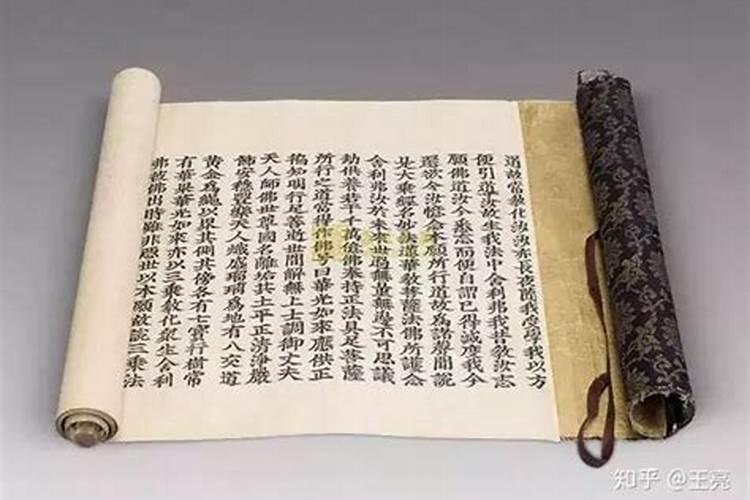 道故常教化汝汝亦長夜隨我受學我以方
便引導汝故生我法中舍利弗我昔教汝志
願佛道汝今悉忘而便自謂已得滅度我今
還欲令汝憶念本願所行道故為諸聲聞說
是大乘經名妙法蓮華教菩薩法佛所護念
舍利弗汝於未來世過無量無邊不可思議
劫供養若干千萬億佛奉持正法具足菩薩
所行之道當得作佛号曰華光如來應供正
徧知明行足善逝世間解無上士調御丈夫
天人師佛世尊國名離垢其土平正清淨嚴
飾安穩豐樂天人熾盛瑠璃為地有八交道
黃金為繩以界其側其傍各有七寶行樹常
有華果華光如來亦以三乘教化眾生舍利
弗彼佛出時雖非惡世以本願故說三乘法
知乎 @王亮